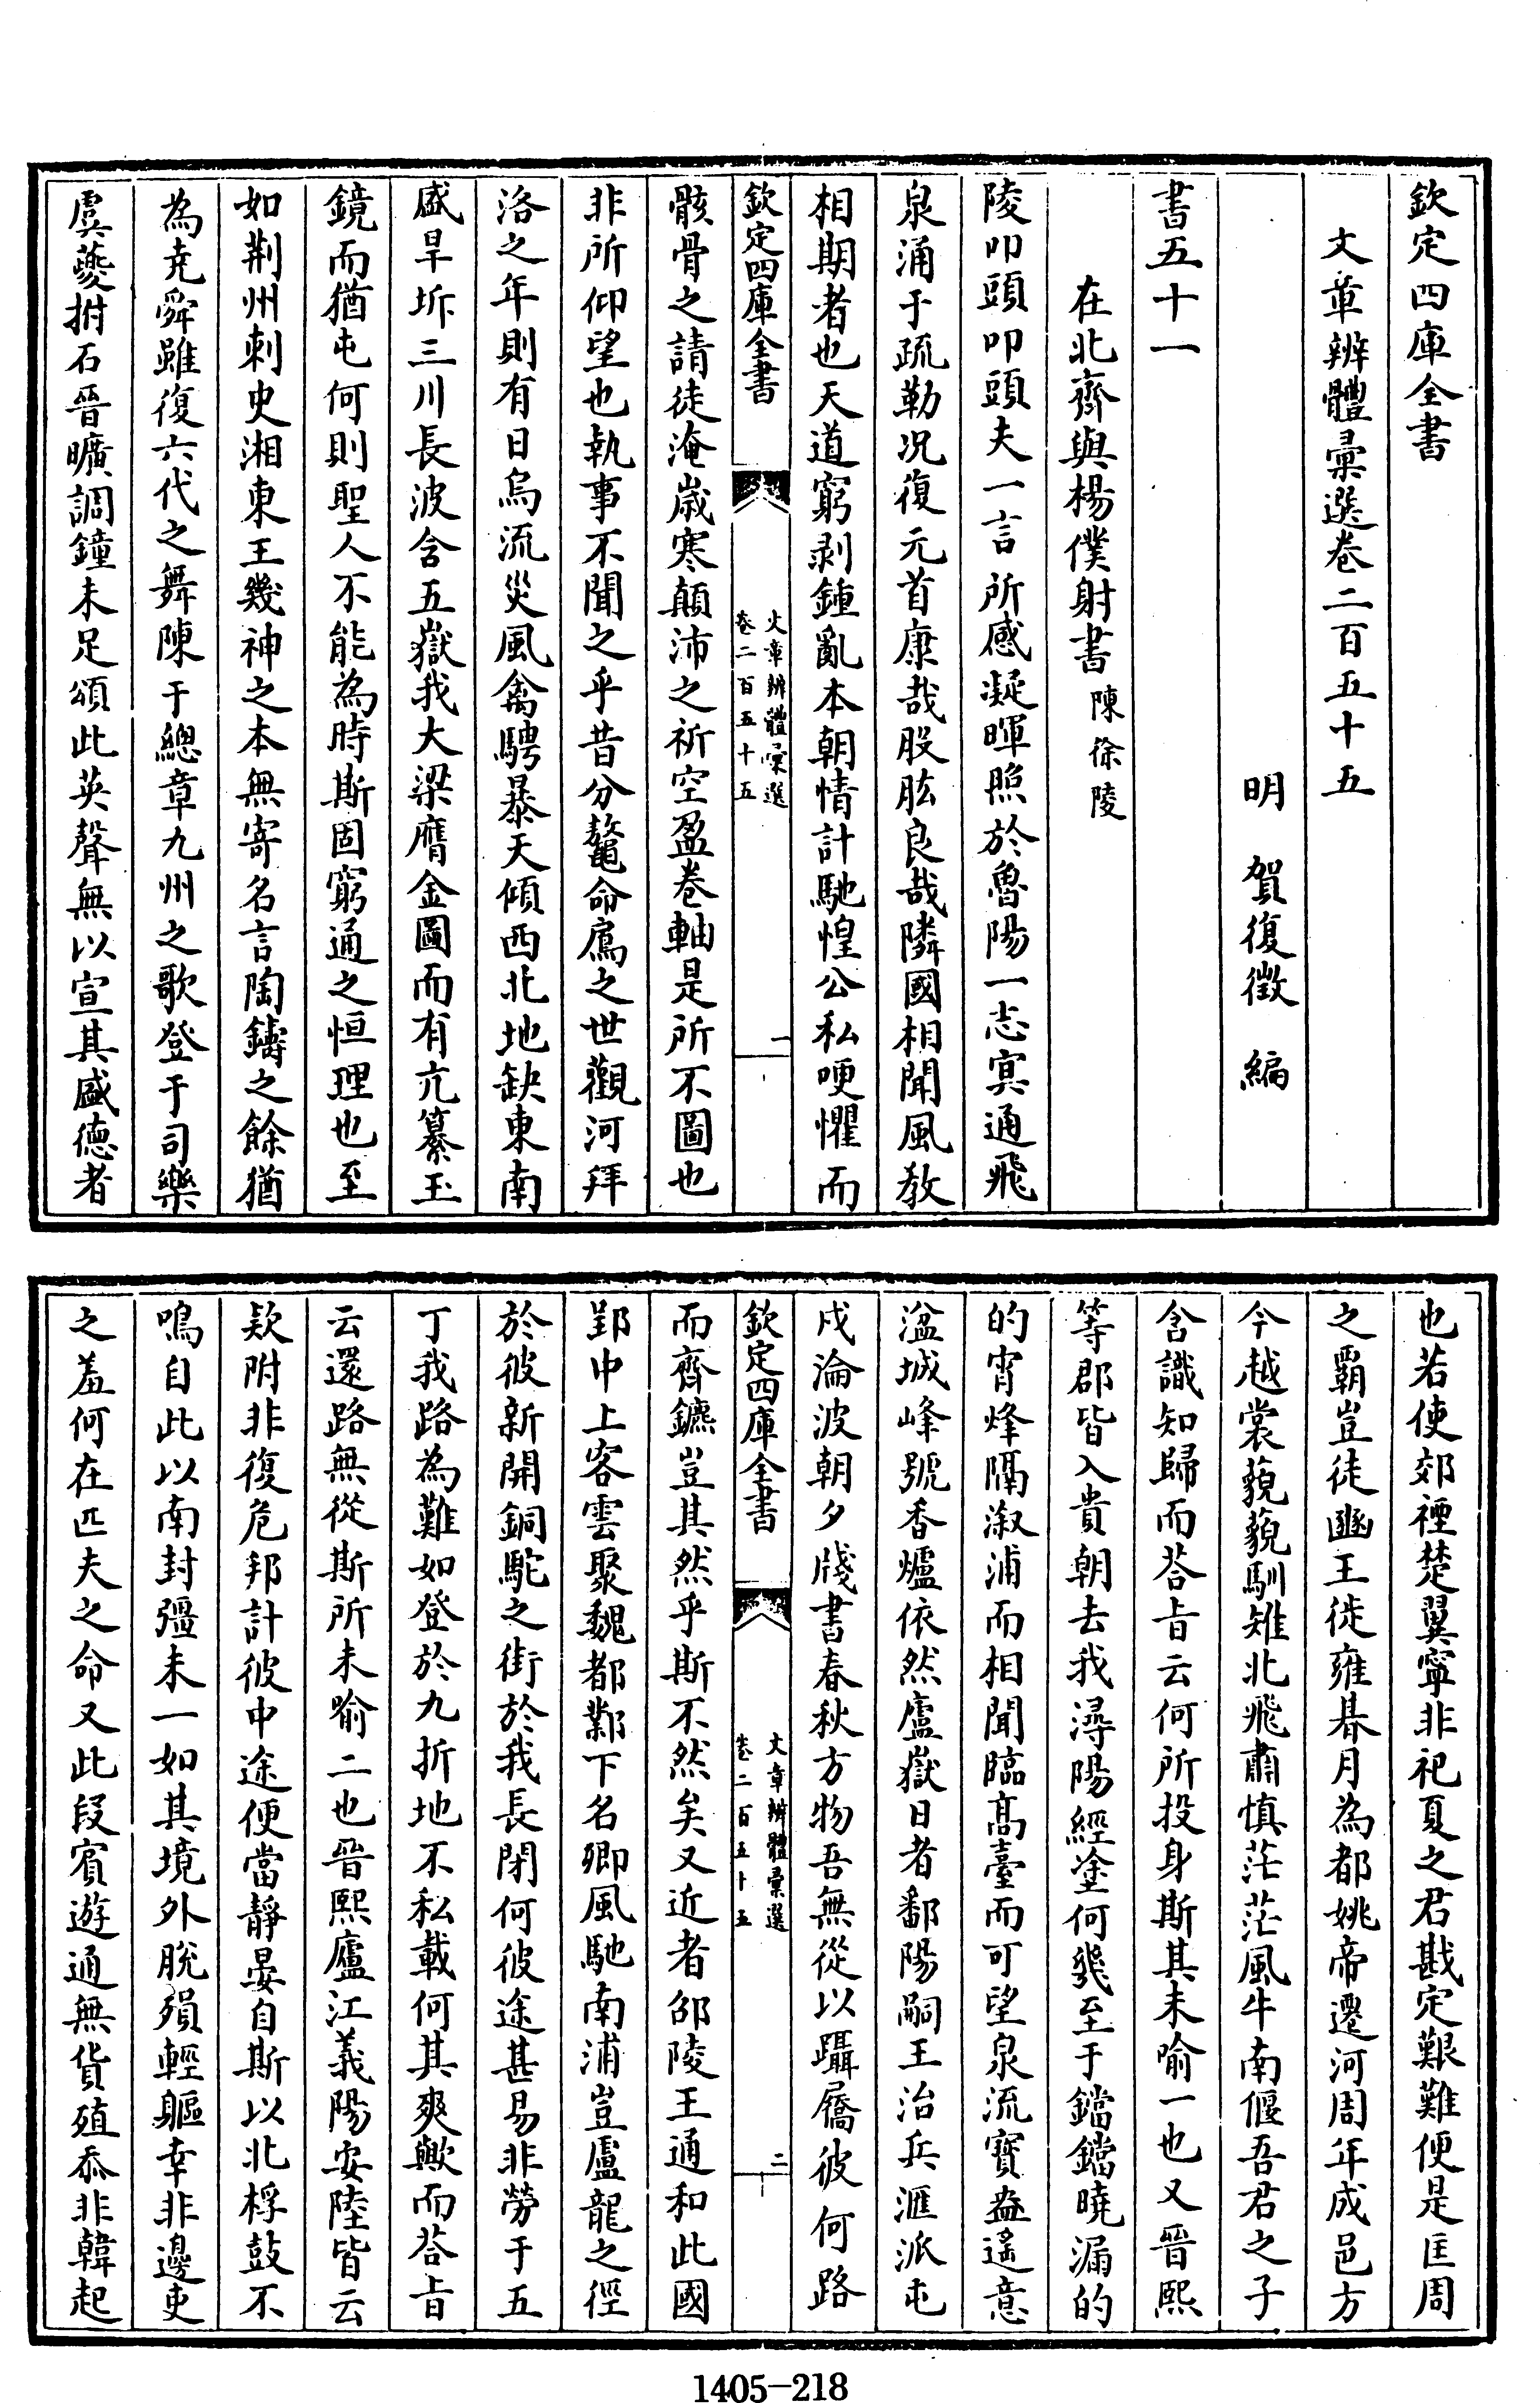 欽定四庫全書
文章辨體彙選巻二百五十五
明賀復徵編
書五十一
在北齊與楊僕射書陳徐陵
陵叩頭叩頭夫一言所感凝暉照於魯陽一志㝠通飛
泉涌于疏勒况復元首康哉股肱良哉隣國相聞風教
相期者也天道窮剥鍾亂本朝情計馳惶公私哽懼而
欽定四庫全書
文章辨體彙選
巻二百五十五
一
骸骨之請徒淹嵗寒顛沛之祈空盈巻軸是所不圖也
非所仰望也執事不聞之乎昔分鼇命鳸之世觀河拜
洛之年則有日烏流災風禽騁暴天傾西北地缺東南
盛旱坼三川長波含五嶽我大梁膺金圖而有亢纂玉
鏡而猶屯何則聖人不能為時斯固窮通之恒理也至
如荆州刺史湘東王幾神之本無寄名言陶鑄之餘猶
為尭舜雖復六代之舞陳于總章九州之歌登于司樂
虞夔拊石晉曠調鐘未足頌此英聲無以宣其盛徳者
也若使郊禋楚翼寜非祀夏之君戡定艱難便是匡周
之霸豈徒豳王徙雍朞月為都姚帝遷河周年成邑方
今越裳藐藐馴雉北飛肅慎茫茫風牛南偃吾君之子
含識知歸而荅㫖云何所投身斯其未喻一也又晉熙
等郡皆入貴朝去我潯陽經塗何幾至于鐺鐺曉漏的
的宵烽隔溆浦而相聞臨髙臺而可望泉流寳盌遥意
湓城峰號香爐依然廬嶽日者鄱陽嗣王治兵滙派屯
戍淪波朝夕牋書春秋方物吾無從以躡屩彼何路
欽定四庫全書
文章辨體彙選
巻二百五十五
二
而齊鑣豈其然乎斯不然矣又近者邵陵王通和此國
郢中上客雲聚魏都鄴下名卿風馳南浦豈盧龍之徑
於彼新開銅駝之街於我長閉何彼途甚易非勞于五
丁我路為難如登於九折地不私載何其爽歟而荅㫖
云還路無從斯所未喻二也晉熙廬江義陽安陸皆云
欵附非復危邦計彼中途便當靜晏自斯以北桴鼓不
鳴自此以南封疆未一如其境外脱殞輕軀幸非邊吏
之羞何在匹夫之命又此段賓遊通無貨殖忝非韓起
1405-218